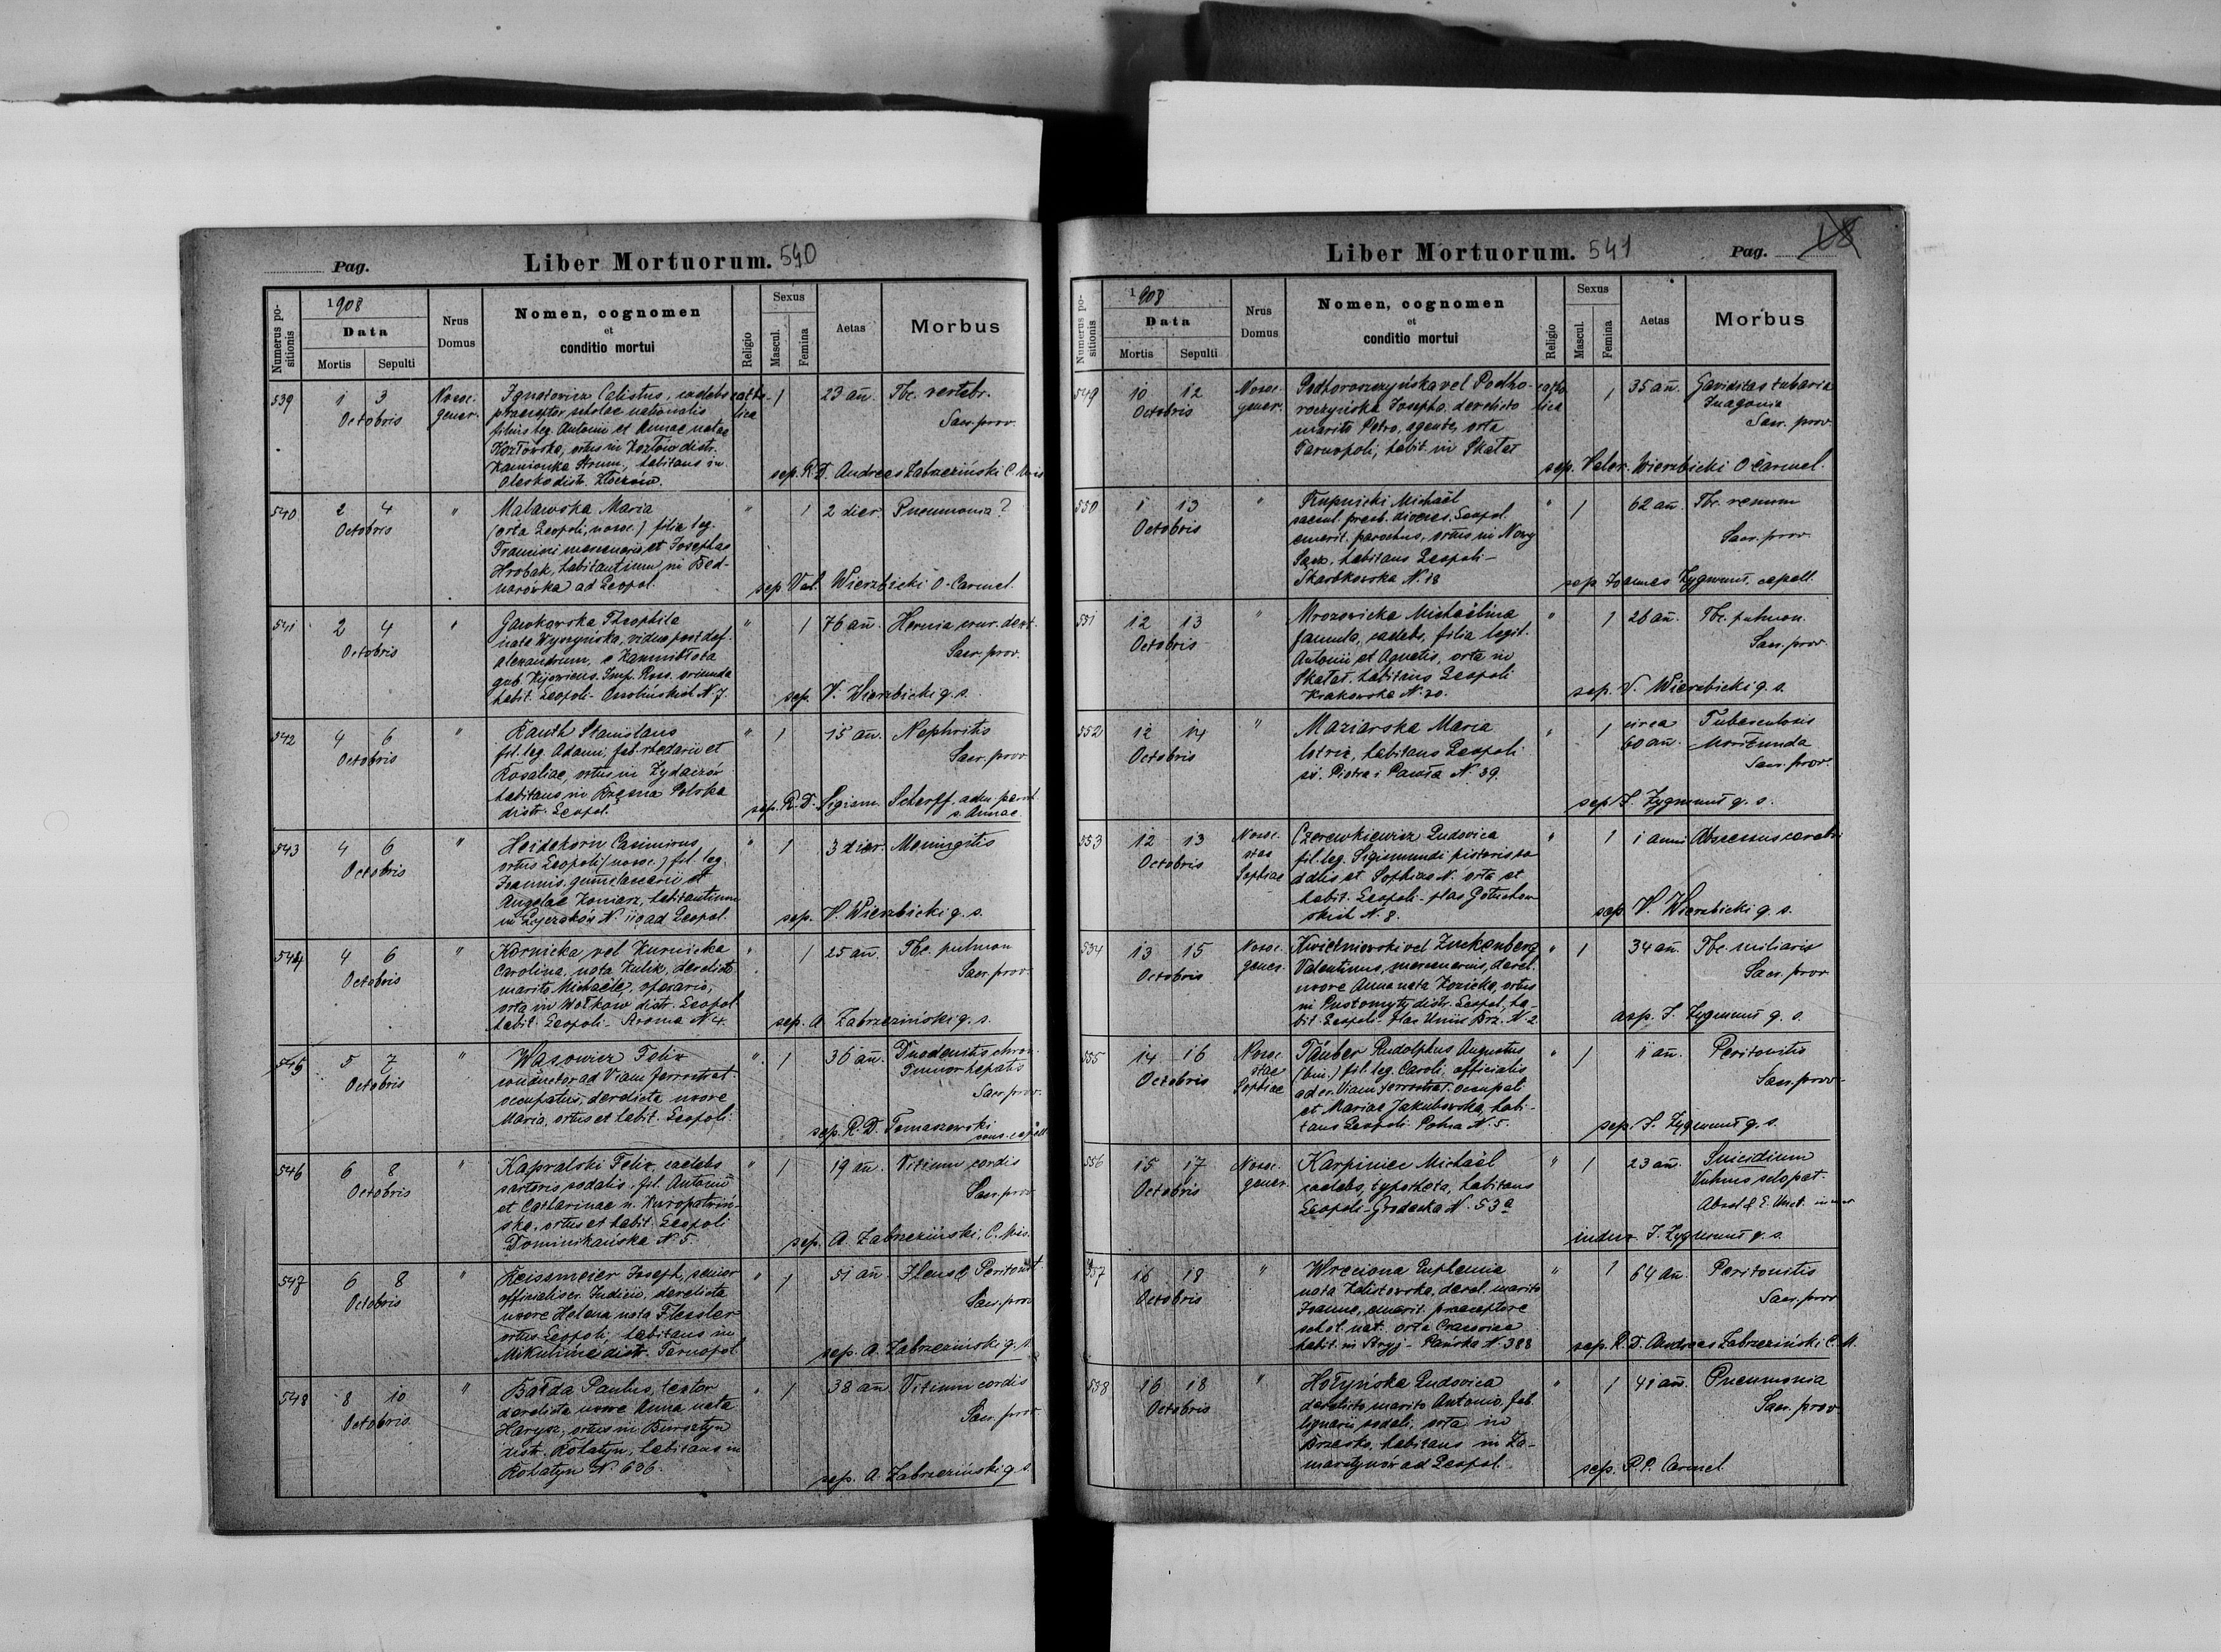 Pag.
Liber Mortuorum. 540
Numerus positionis
1908
Data
Mortis
Sepulti
Nrus Domus
Nomen, cognomen
et
conditio mortui
Religio
Sexus
Mascul.
Femina
Aetas
Morbus
539
1 3
Octobris
Nosoc.
gener.
Ignatowicz Calistus, caelebs
praeceptor scholae nationalis
filius leg. Antonii et Annae natae
Kozłowska, ortus in Kozłów distr.
Kamionka Strum., habitans in
Olesko distr. Złoczów.
catho-
lica
1
23 añ.
Tbc. vertebr.
Sacr. prov.
sep. R. D. Andreas Zabrzeziński C. Mis
540
2 4
Octobris
"
Malawska Maria
(orta Leopoli, nosoc.) filia leg.
Francisci mercenarii et Josephae
Hrobak, habitantium in Bed-
narówka ad Leopol.
"
1
2 dier.
Pneumonia?
sep. Val. Wierzbicki O. Carmel.
541
2 4
Octobris
"
Gawkowska Theophila
nata Wyszyńska, vidua post def.
Alexandrum, e
gub. Kijoviens. Imp. Ross. oriunda
habit. Leopoli - Ossolińskich N. 7.
"
1
76 añ.
Hernia crur. dext.
Sacr. prov.
sep. V. Wierzbicki q. s.
542
4 6
Octobris
"
Kauth Stanislaus
fil. leg. Adami, fab. rhedarii et
Rosaliae, ortus in Żydaczów
habitans in Rzęsna Polska
distr. Leopol.
"
1
15 añ.
Nephritis
Sacr. prov.
sep. R. D. Sigism. Scherff, adm. paroch.
s. Annae
543
4 6
Octobris
"
Heidekorn Casimirus
ortus Leopoli (nosoc.) fil. leg.
Joannis
Angelae Koniarz, habitantium
in Łyczaków N. 110 ad Leopol.
"
1
3 dier.
Meningitis
sep. V. Wierzbicki q. s.
544
4 6
Octobris
"
Kornicka vel Kurnicka
Carolina, nata Kulik, derelicto
marito Michaele, operario,
orta in Wołków distr. Leopol.
habit. Leopoli - Stroma N. 4.
"
1
25 añ.
Tbc. pulmon
Sacr. prov.
sep. A. Zabrzeziński q. s.
545
5 7
Octobris
"
Wasowicz Felix
conductor ad Viam ferrostrat.
occupatus, derelicta uxore
Maria, ortus et habit. Leopoli.
"
1
36 añ.
Duodenitis chron.
Tumor hepatis
Sacr. prov.
sep. R. D. Tomaszewski
546
6 8
Octobris
"
Kapralski Felix, caelebs
sartoris sodalis, fil. Antonii
et Catharinae n. Kuropatwiń-
ska, ortus et habit. Leopoli
Dominikańska N. 5.
"
1
19 añ.
Vitium cordis
Sacr. prov.
sep. A. Zabrzeziński, C. Mis.
547
6 8
Octobris
"
Reissmeier Joseph, senior
officialis cr. Judicii, derelicta
uxore Helena nata Flessler
ortus Leopoli, habitans in
Mikulińce distr. Tarnopol
"
1
51 añ.
Ileus & Peritonit
Sacr. prov
sep. A. Zabrzeziński q. s.
548
8 10
Octobris
"
Bałda Paulus, textor
derelicta uxore Anna nata
Harysz, ortus in Bursztyn
distr. Rohatyn, habitans in
Rohatyn N. 636.
"
1
38 añ
Vitium cordis
Sacr. prov.
sep. A. Zabrzeziński q. s.
Liber Mortuorum. 541
Pag. 18
Numerus positionis
1908
Data
Mortis
Sepulti
Nrus Domus
Nomen, cognomen
et
conditio mortui
Religio
Sexus
Mascul.
Femina
Aetas
Morbus
549
10 12
Octobris
Nosoc.
gener.
Podhoroszyńska vel Podho-
roczyńska Josepha, derelicto
marito Petro, agente, orta
Tarnopoli, habit. in Skałat
catho
lica
1
35 añ.
Gaviditas tubaria
Inagonia
Sacr. prov.
sep. Valer. Wierzbicki O. Carmel.
550
1 13
Octobris
"
Krupnicki Michaël
saecul. presb. dioeces. Leopol.
emerit. parochus, ortus in Nowy
Sącz, habitans Leopoli -
Skarbkowska N. 18
"
1
62 añ.
Tbc. renum
Sacr. prov.
sep. Joannes Zygmunt, capell.
551
12 13
Octobris
"
Mrozowicka Michaëlina
famula, caelebs, filia legit.
Antonii et Agnetis, orta in
Skałat, habitans Leopoli
Krakowska N. 20.
"
1
26 añ.
Tbc. pulmon.
Sacr. prov.
sep. V. Wierzbicki q. s.
552
12 14
Octobris
"
Maziarska Maria
lotrix, habitans Leopoli
św. Piotra i Pawła N. 39.
"
1
circa
60 añ.
Tuberculosis
Moribunda
Sacr. prov.
sep. J. Zygmunt q. s.
553
12 13
Octobris
Nosoc.
stae
Sophiae
Czerewkiewicz Ludovica
fil. leg. Sigismundi pistoris so-
dalis et Sophiae N. orta et
habit. Leopoli - plac Gołuchow-
skich N. 8.
"
1
1 anni
Abscessus cerebri
sep. V. Wierzbicki q. s.
554
13 15
Octobris
Nosoc.
gener.
Kwietniowski vel Zuckenberg
Valentinus, mercenarius, derel.
uxore Anna nata Kozicka, ortus
in Pustomyty distr. Leopol., ha-
bit. Leopoli - plac Unii Brz. N. 2
"
1
34 añ.
Tbc. miliaris
Sacr. prov
asp. J. Zygmunt q. s.
555
14 16
Octobris
Nosoc.
stae
Sophiae
Täuber Rudolphus Augustus
(bin.) fil. leg. Caroli, officialis
ad cr. Viam ferrostrat. occupat.
et Mariae Jakubowska, habi-
tans Leopoli. Polna N. 5.
"
1
11 añ.
Peritonitis
Sacr. prov.
sep. J. Zygmunt q. s.
556
15 17
Octobris
Nosoc.
gener.
Karpiniec Michaël
caelebs, typotheta, habitans
Leopoli - Grodecka N. 53a
"
1
23 añ.
Suicidium
Vulnus sclopat.
Absol & E. Unct.
indux. J. Zygmunt q. s.
557
16 18
Octobris
"
Wreciona Euphemia
nata Zalistowska, derel. marito
Joanne, emerit. praeceptore
schol. nat. orta Cracoviae
habit. in Stryj - Pańska N. 388
"
1
64 añ.
Peritonitis
Sacr. prov
sep. R. D. Andreas Zabrzeziński C. M.
558
16 18
Octobris
"
Hołyńska Ludovica
derelicto marito Antonio, fab.
lignarii sodali, orta in
Brzesko, habitans in Za-
marstynów ad Leopol.
"
1
41 añ.
Pneumonia
Sacr. prov.
sep. P. P. Carmel.